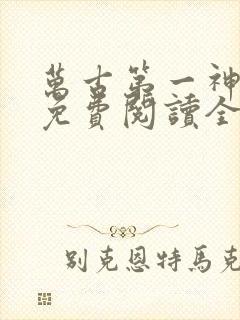 萬古第一神
免費閱讀全
別克恩特馬克